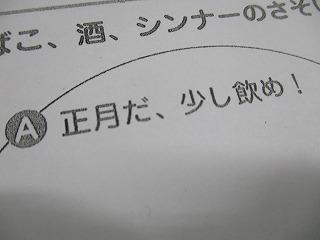 ばこ、酒、シンナーのさそい
A 正月だ、少し飲め！